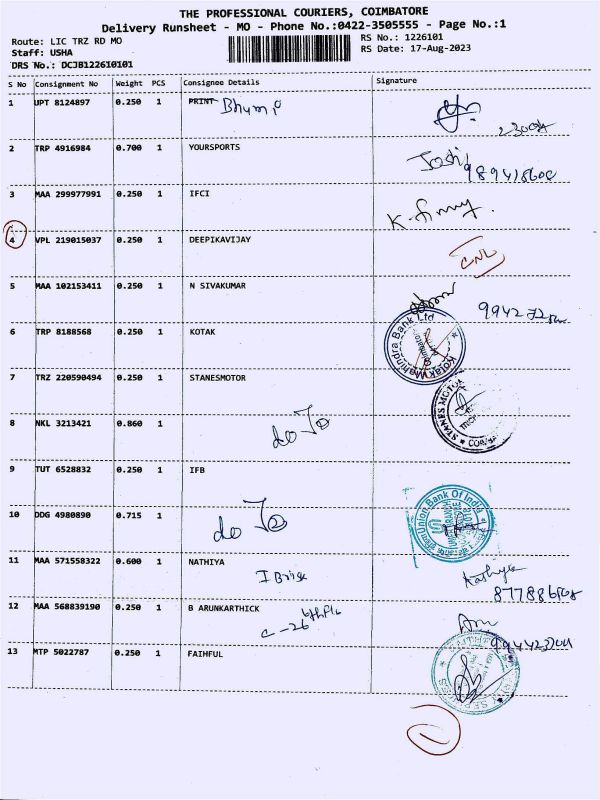 THE PROFESSIONAL COURIERS, COIMBATORE
Delivery Runsheet - MO - Phone No.:0422-3505555 - Page No.:1
Route: LIC TRZ RD MO
RS No.: 1226101
Staff: USHA
RS Date: 17-Aug-2023
DRS No.: DCJB122610101
S No Consignment No Weight PCS Consignee Details Signature
1 UPT 8124897 0.250 1 PRINT
2 TRP 4916984 0.700 1 YOURSPORTS
3 MAA 299977991 0.250 1 IFCI
4 VPL 219015037 0.250 1 DEEPIKAVIJAY
CNL
5 MAA 102153411 0.250 1 N SIVAKUMAR
6 TRP 8188568 0.250 1 KOTAK
Kotak Mahindra Bank Ltd
7 TRZ 220590494 0.250 1 STANESMOTOR
STANES MOTOR
8 NKL 3213421 0.860 1
9 TUT 6528832 0.250 1 IFB
10 DDG 4980890 0.715 1
Union Bank Of India
11 MAA 571558322 0.600 1 NATHIYA
12 MAA 568839190 0.250 1 B ARUNKARTHICK
C-26
13 MTP 5022787 0.250 1 FAIHFUL
1